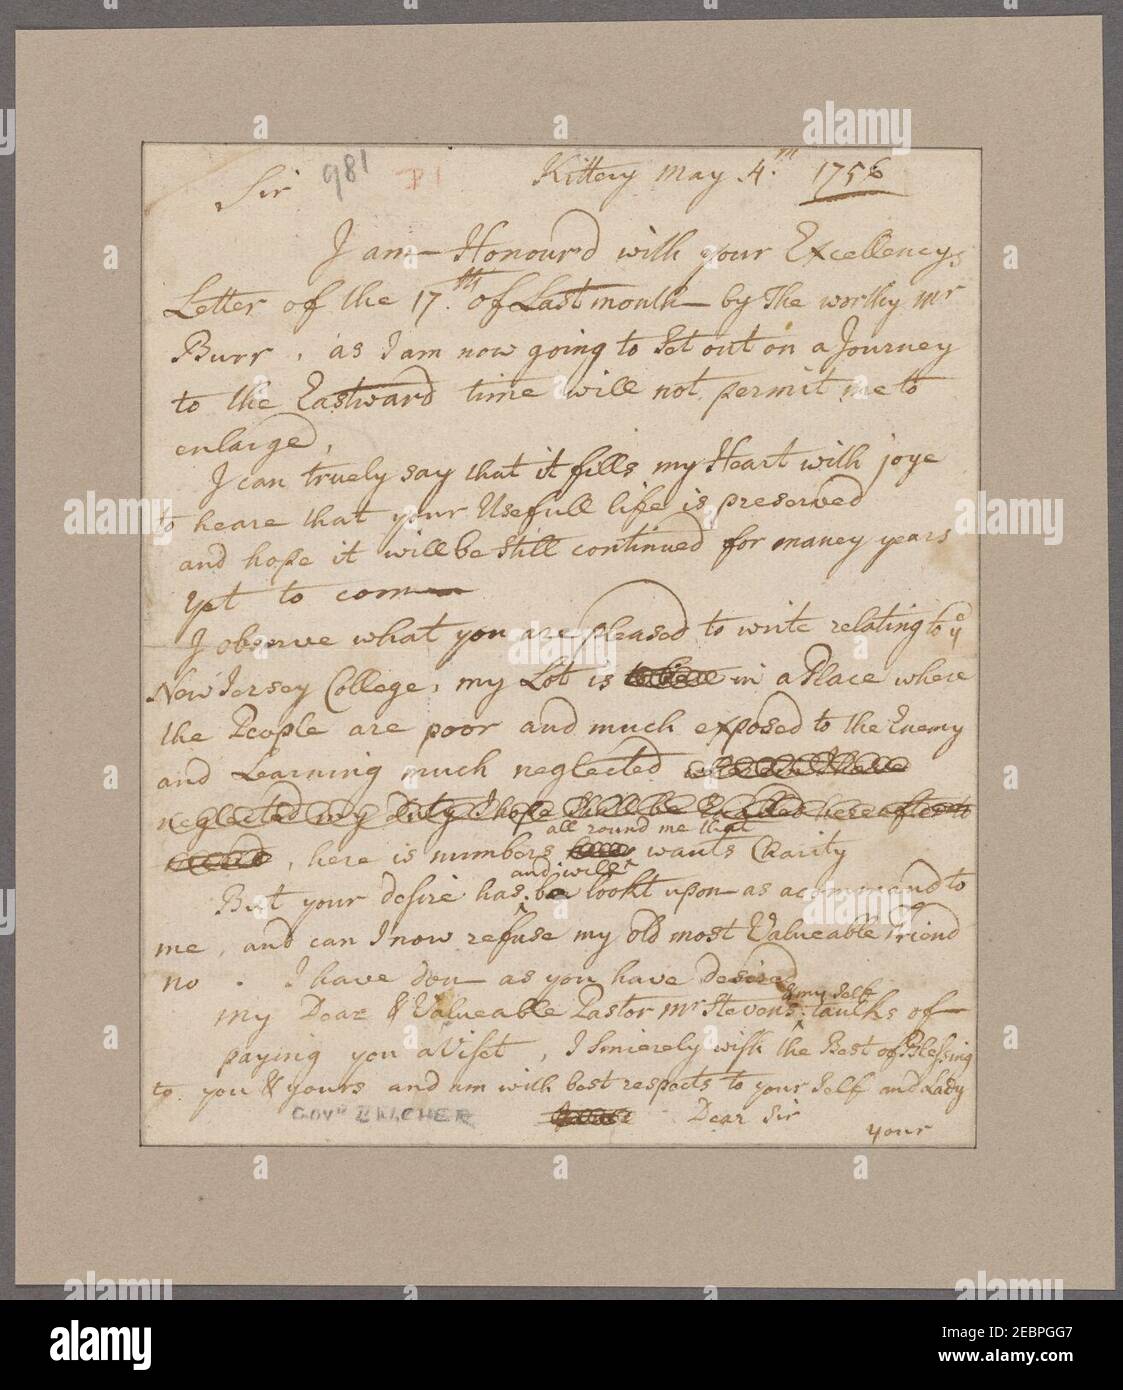 Sir 981 P1 Kittery May 4.th 1756
I am Honour'd with your Excellencys
Letter of the 17.th of Last month by The worthy Mr
Burr, as I am now going to Set out on a Journey
to the Eastward time will not permit me to
enlarge,
I can truely say that it fills my Heart with joye
to heare that your Usefull life is preserved
and hope it will be Still continued for maney years
yet to com
I observe what you are pleased to write relating to ye
New Jersey College, my Lot is in a Place where
the People are poor and much exposed to the Enemy
and Learning much neglected
neglected my duty I hope Shall be hereafter
all round me that
, here is numbers wants Charity
and will
But your desire has be lookt upon as a command to
me, and can I now refuse my old most Valueable Friend
no. I have don as you have desired
& my Self
my Dear & Valueable Pastor Mr Stevens taulks of
paying you a Viset, I Sincerely wish the Best of Blessing
to you & yours and am with best respects to your Self and Lady
Govr BELCHER Dear Sir
your
alamy
a
Image ID: 2EBPGG7
www.alamy.com